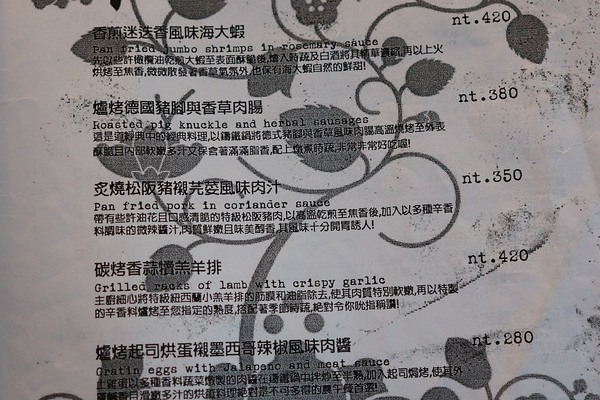 香煎迷迭香風味海大蝦
nt.420
Pan fried jumbo shrimps in rosemary sauce
先以些許橄欖油乾煎大蝦至表面酥脆後,加入時蔬及白酒將其精華濃縮,再以上火
烘烤至焦香,微微散發著香草氣氛外,也保有海大蝦自然的鮮甜!
爐烤德國豬腳與香草肉腸
nt.380
Roasted pig knuckle and herbal sausages
這是道經典中的經典料理,以鑄鐵鍋將德式豬腳與香草風味肉腸高溫燒烤至外表
酥脆且內部軟嫩多汁又保含著滿滿脂香,配上燉煮時蔬,非常非常好吃喔!
炙燒松阪豬襯芫荽風味肉汁
nt.350
Pan fried pork in coriander sauce
帶有些許油花且口感清脆的特級松阪豬肉,以高溫乾煎至焦香後,加入以多種辛香
料調味的微辣醬汁,肉質鮮嫩且味美醇香,其風味十分開胃誘人!
碳烤香蒜犢羔羊排
nt.420
Grilled racks of lamb with crispy garlic
主廚細心將特級紐西蘭小羔羊排的筋膜和油脂除去,使其肉質特別軟嫩,再以特製
的辛香料爐烤至您指定的熟度,搭配著季節時蔬,絕對令你吮指稱讚!
爐烤起司烘蛋襯墨西哥辣椒風味肉醬
nt.280
Gratin eggs with Jalapeno and meat sauce
土雞蛋以多種香料蔬菜燉製的肉醬在鑄鐵鍋中拌炒至半熟,加入起司焗烤,使其外
多汁的烘蛋料理絕對是不可多得的